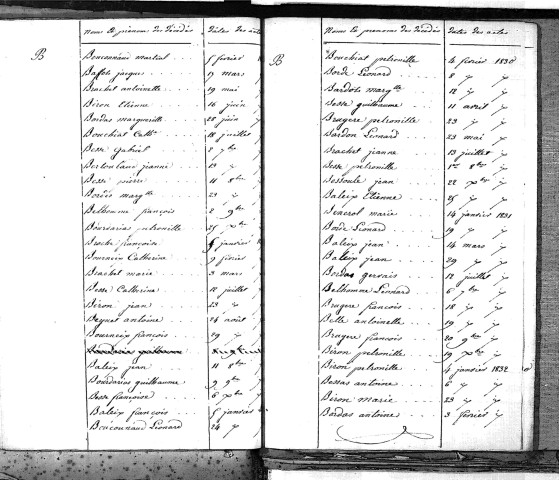 Noms et prénoms des décédés Dates des actes
B
Bouconnaud martial 5 février
Baffet jacques 19 mars
Brachet antoinette 19 mai
Biron Etienne 16 juin
Bordas marguerite 28 juin
Bouchiat Cath.e 18 juillet
Besse gabriel 2 7bre
Bertoulaud jeanne 13
Besse pierre 11 8bre
Bordes marg.tte 23
Belhomme françois 2 9bre
Bourdarias petronille 25 Xbre
Broche françoise janvier
Bourneix Catherine 9 février
Brachet marie 3 mars
Besse Catherine 12 juillet
Biron jean 23
Beynet antoine 24 août
Bourneix françois 29
Baleix jean 11 8bre
Bourdarias guilhaume 9 9bre
Besse françoise 6 Xbre
Baleix françois 5 janvier
Bouconnaud Léonard 24
Noms et prenoms des décédés Dates des actes
B
Bouchiat petronille 4 février 1830
Borde Léonard 8
Bardots marg.tte 12
Besse guilhaume 11 avril
Brugere petronille 23
Bardon Léonard 23 mai
Brachet jeanne 13 juillet
Besse petronille 1er 8bre
Bessoule jean 22 Xbre
Baleix Etienne 25
Bencrol marie 14 janvier 1831
Borde Léonard 19
Baleix jean 14 mars
Baleix jean 29
Bordas gervais 12 juillet
Belhomme Léonard 6 7bre
Brugere françois 18
Belle antoinette 19
Brugere françois 20 9bre
Biron petronille 19 Xbre
Biron petronille 4 janvier 1832
Bessas antoine 6
Biron marie 23
Bordas antoine 3 février